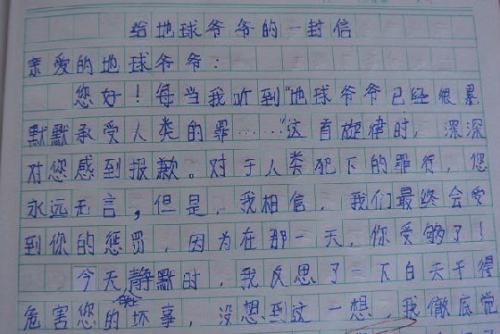 给地球爷爷的一封信
亲爱的地球爷爷:
您好!每当我听到"地球爷爷已经很累
默默承受人类的罪……"这首旋律时,深深
对您感到报歉。对于人类犯下的罪行,您
永远无言,但是,我相信,我们最终会受
到你的惩罚,因为在那一天,你受够了!
今天静默时,我反思了一下白天干得
危害您的坏事,没想到这一想,我徹底觉